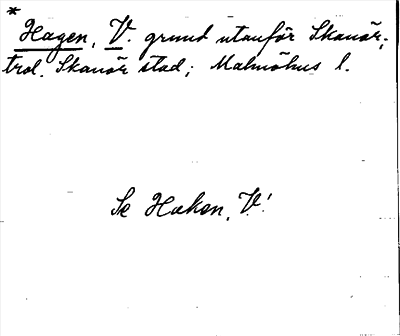 *
Hagen, V. grund utanför Skanör;
trol. Skanör stad; Malmöhus l.
Se Haken, V.!